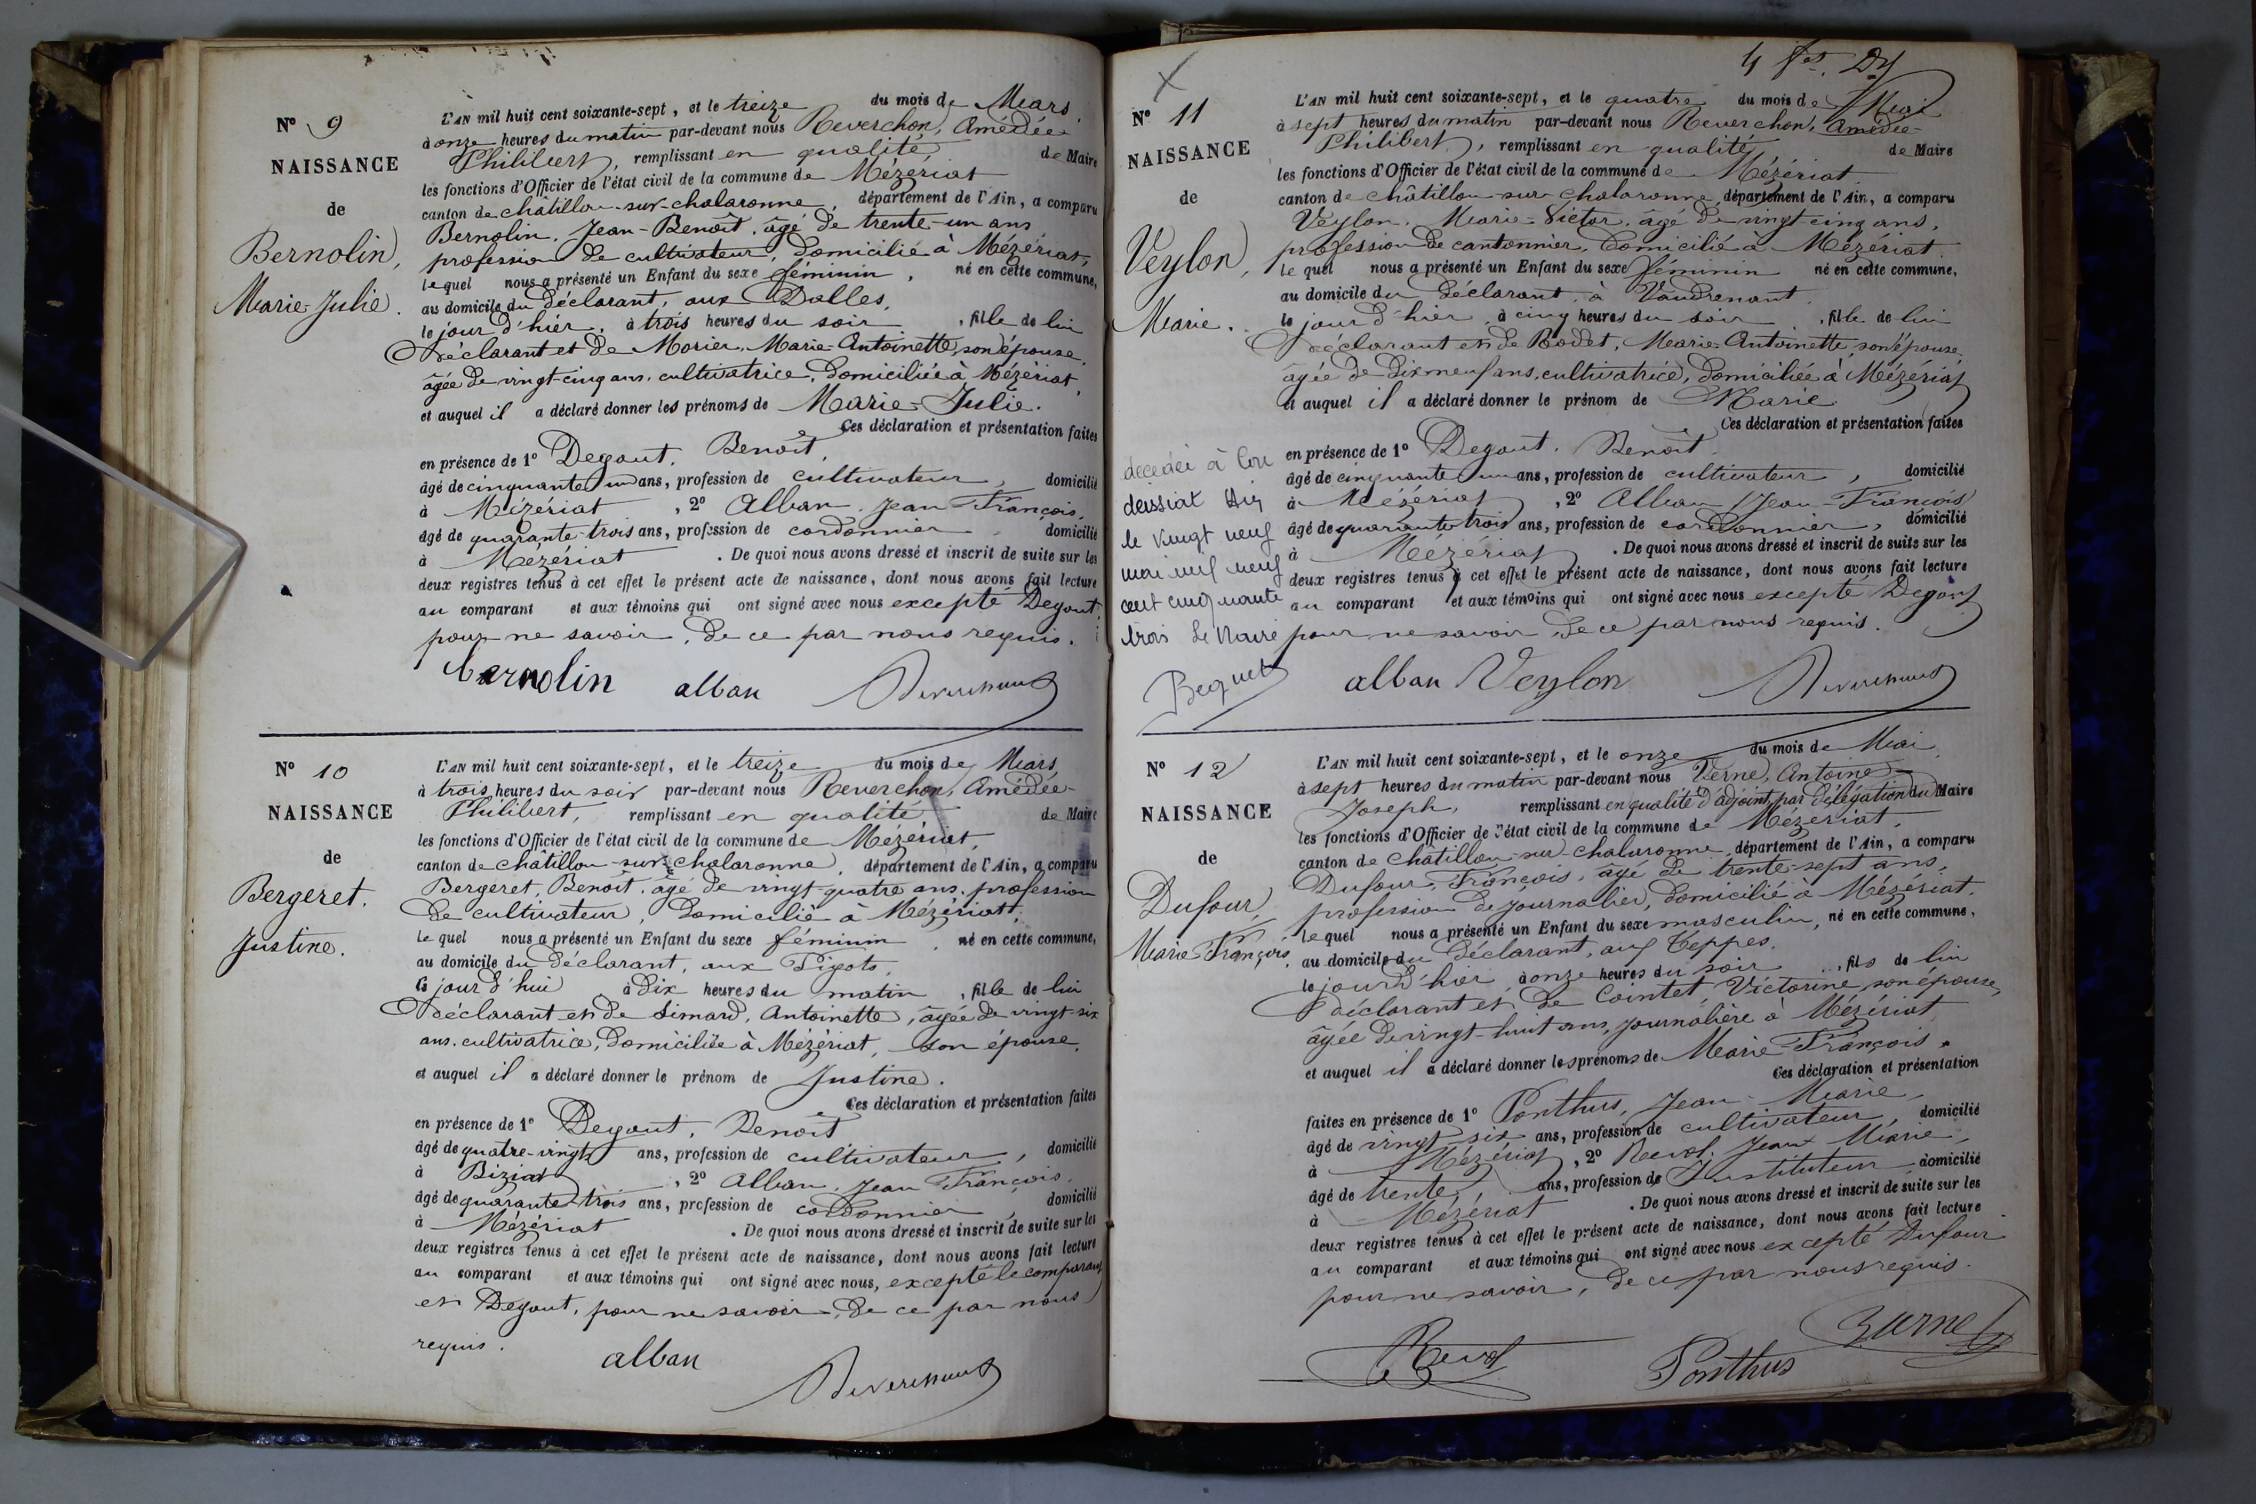 N° 9
NAISSANCE
de
Bernolin,
Marie-Julie.
L'AN mil huit cent soixante-sept, et le treize du mois de Mars,
à onze heures du matin par-devant nous Reverchon, Amédée-
Philibert, remplissant en qualité de Maire
les fonctions d'Officier de l'état civil de la commune de Mézériat
canton de châtillon-sur-chalaronne, département de l'Ain, a comparu
Bernolin, Jean-Benoît, âgé de trente-un ans
profession de cultivateur, domicilié à Mézériat,
lequel nous a présenté un Enfant du sexe féminin, né en cette commune,
au domicile du déclarant, aux Dalles,
le jour d'hier, à trois heures du soir, fille de lui
déclarant et de Morier, Marie-Antoinette, son épouse,
âgée de vingt-cinq ans, cultivatrice, domiciliée à Mézériat,
et auquel il a déclaré donner les prénoms de Marie-Julie.
Ces déclaration et présentation faites
en présence de 1° Degout, Benoît,
âgé de cinquante un ans, profession de cultivateur, domicilié
à Mézériat, 2° Alban, Jean-François,
âgé de quarante-trois ans, profession de cordonnier, domicilié
à Mézériat. De quoi nous avons dressé et inscrit de suite sur les
deux registres tenus à cet effet le présent acte de naissance, dont nous avons fait lecture
au comparant et aux témoins qui ont signé avec nous excepté Degout,
pour ne savoir, de ce par nous requis.
Bernolin alban Reverchon
N° 10
NAISSANCE
de
Bergeret.
Justine.
L'AN mil huit cent soixante-sept, et le treize du mois de Mars
à trois heures du soir par-devant nous Reverchon, Amédée-
Philibert, remplissant en qualité de Maire
les fonctions d'Officier de l'état civil de la commune de Mézériat,
canton de châtillon-sur-chalaronne, département de l'Ain, a comparu
Bergeret, Benoît, âgé de vingt-quatre ans, profession
de cultivateur, domicilié à Mézériat,
lequel nous a présenté un Enfant du sexe féminin, né en cette commune,
au domicile du déclarant, aux Pigots,
le jour d'hui à dix heures du matin, fille de lui
déclarant et de Simard, Antoinette, âgée de vingt-six
ans, cultivatrice, domiciliée à Mézériat, son épouse,
et auquel il a déclaré donner le prénom de Justine.
Ces déclaration et présentation faites
en présence de 1° Degout, Benoît
âgé de quatre-vingts ans, profession de cultivateur, domicilié
à Biziat, 2° Alban, Jean François,
âgé de quarante trois ans, profession de cordonnier, domicilié
à Mézériat. De quoi nous avons dressé et inscrit de suite sur les
deux registres tenus à cet effet le présent acte de naissance, dont nous avons fait lecture
au comparant et aux témoins qui ont signé avec nous, excepté le comparant
et Degout, pour ne savoir, de ce par nous
requis.
alban Reverchon
N° 11
NAISSANCE
de
Veylon,
Marie.
L'AN mil huit cent soixante-sept, et le quatre du mois de Mai
à sept heures du matin par-devant nous Reverchon, Amédée-
Philibert, remplissant en qualité de Maire
les fonctions d'Officier de l'état civil de la commune de Mézériat
canton de châtillon-sur-chalaronne, département de l'Ain, a comparu
Veylon, Marie-Victor, âgé de vingt-cinq ans,
profession de cantonnier, domicilié à Mézériat,
lequel nous a présenté un Enfant du sexe féminin né en cette commune,
au domicile du déclarant, à Vaudrenant,
le jour d'hier, à cinq heures du soir, fille de lui
déclarant et de Bodet, Marie-Antoinette, son épouse,
âgée de dix neuf ans, cultivatrice, domiciliée à Mézériat
et auquel il a déclaré donner le prénom de Marie
Ces déclaration et présentation faites
en présence de 1° Degout, Benoît,
âgé de cinquante un ans, profession de cultivateur, domicilié
à Mézériat, 2° Alban, Jean-François
âgé de quarante trois ans, profession de cordonnier, domicilié
à Mézériat. De quoi nous avons dressé et inscrit de suite sur les
deux registres tenus à cet effet le présent acte de naissance, dont nous avons fait lecture
au comparant et aux témoins qui ont signé avec nous excepté Degout
pour ne savoir, de ce par nous requis.
alban Veylon Reverchon
décédée à Con
deissiat Ain
le vingt neuf
mai mil neuf
cent cinquante
trois Le Maire
Becquet
N° 12
NAISSANCE
de
Dufour,
Marie-François.
L'AN mil huit cent soixante-sept, et le onze du mois de Mai
à sept heures du matin par-devant nous Verne, Antoine-
Joseph, remplissant en qualité d'adjoint, par délégation du Maire
les fonctions d'Officier de l'état civil de la commune de Mézériat,
canton de châtillon-sur-chalaronne, département de l'Ain, a comparu
Dufour, François, âgé de trente-sept ans,
profession de journalier, domicilié à Mézériat,
lequel nous a présenté un Enfant du sexe masculin, né en cette commune,
au domicile du déclarant, aux Teppes,
le jour d'hier, à onze heures du soir, fils de lui
déclarant et de Cointet, Victorine, son épouse,
âgée de vingt-huit ans, journalière à Mézériat,
et auquel il a déclaré donner les prénoms de Marie-François.
Ces déclaration et présentation
faites en présence de 1° Ponthus, Jean-Marie,
âgé de vingt six ans, profession de cultivateur, domicilié
à Mézériat, 2° Revol, Jean Marie,
âgé de trente, ans, profession de Instituteur, domicilié
à Mézériat. De quoi nous avons dressé et inscrit de suite sur les
deux registres tenus à cet effet le présent acte de naissance, dont nous avons fait lecture
au comparant et aux témoins qui ont signé avec nous excepté Dufour
pour ne savoir, de ce par nous requis.
Revol Ponthus Verne